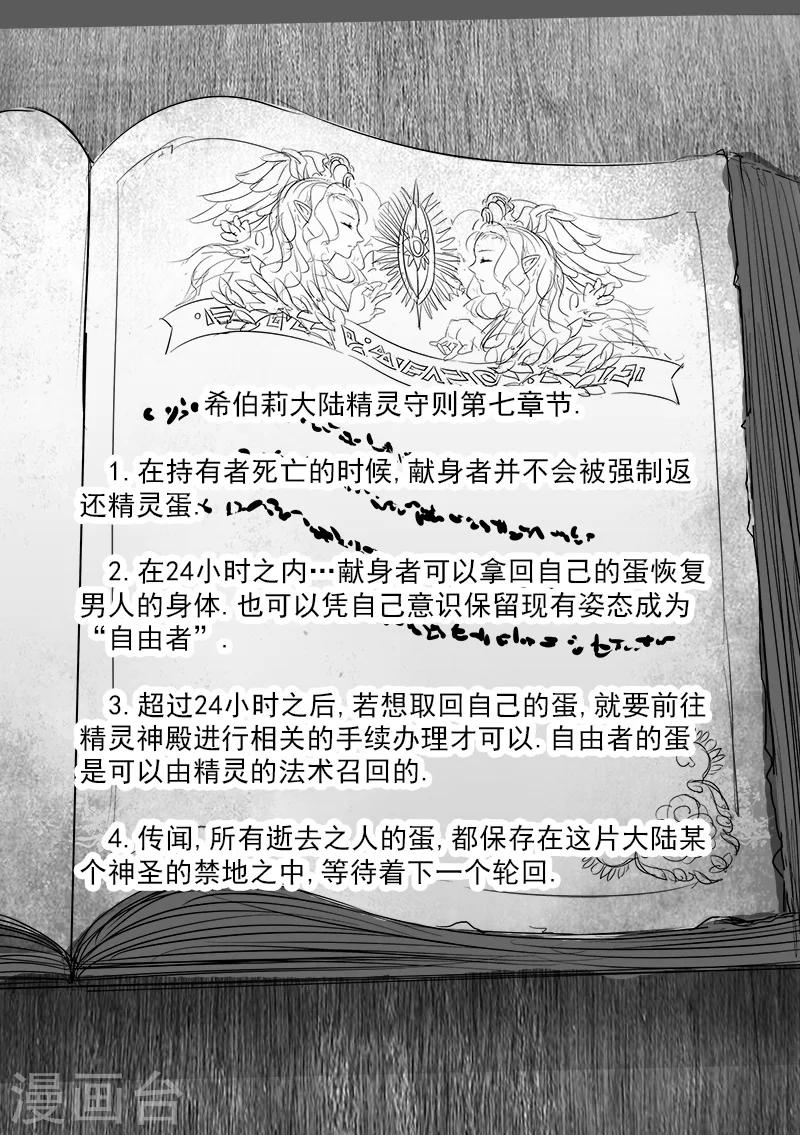 希伯莉大陆精灵守则第七章节.
1.在持有者死亡的时候,献身者并不会被强制返
还精灵蛋.
2.在24小时之内…献身者可以拿回自己的蛋恢复
男人的身体.也可以凭自己意识保留现有姿态成为
“自由者”.
3.超过24小时之后,若想取回自己的蛋,就要前往
精灵神殿进行相关的手续办理才可以.自由者的蛋
是可以由精灵的法术召回的.
4.传闻,所有逝去之人的蛋,都保存在这片大陆某
个神圣的禁地之中,等待着下一个轮回.
漫画台